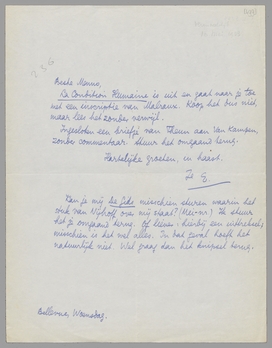 Beste Menno,
La Condition Humaine is uit en gaat naar je toe
met een inscriptie van Malraux. Koop het dus niet,
maar lees het zonder verwijl.
Ingesloten een briefje van Theun aan van Kampen,
zonder commentaar. Stuur het omgaand terug.
Hartelijke groeten, in haast.
Je E.
Kan je mij De Gids misschien sturen waarin het
stuk van Nijhoff over mij staat? (Mei-nr.) Ik stuur
het je omgaand terug. Of liever: hierbij een uittreksel;
misschien is het wel alles. In dat geval hoeft het
natuurlijk niet. Wel graag dan het knipsel terug.
Bellevue, Woensdag.